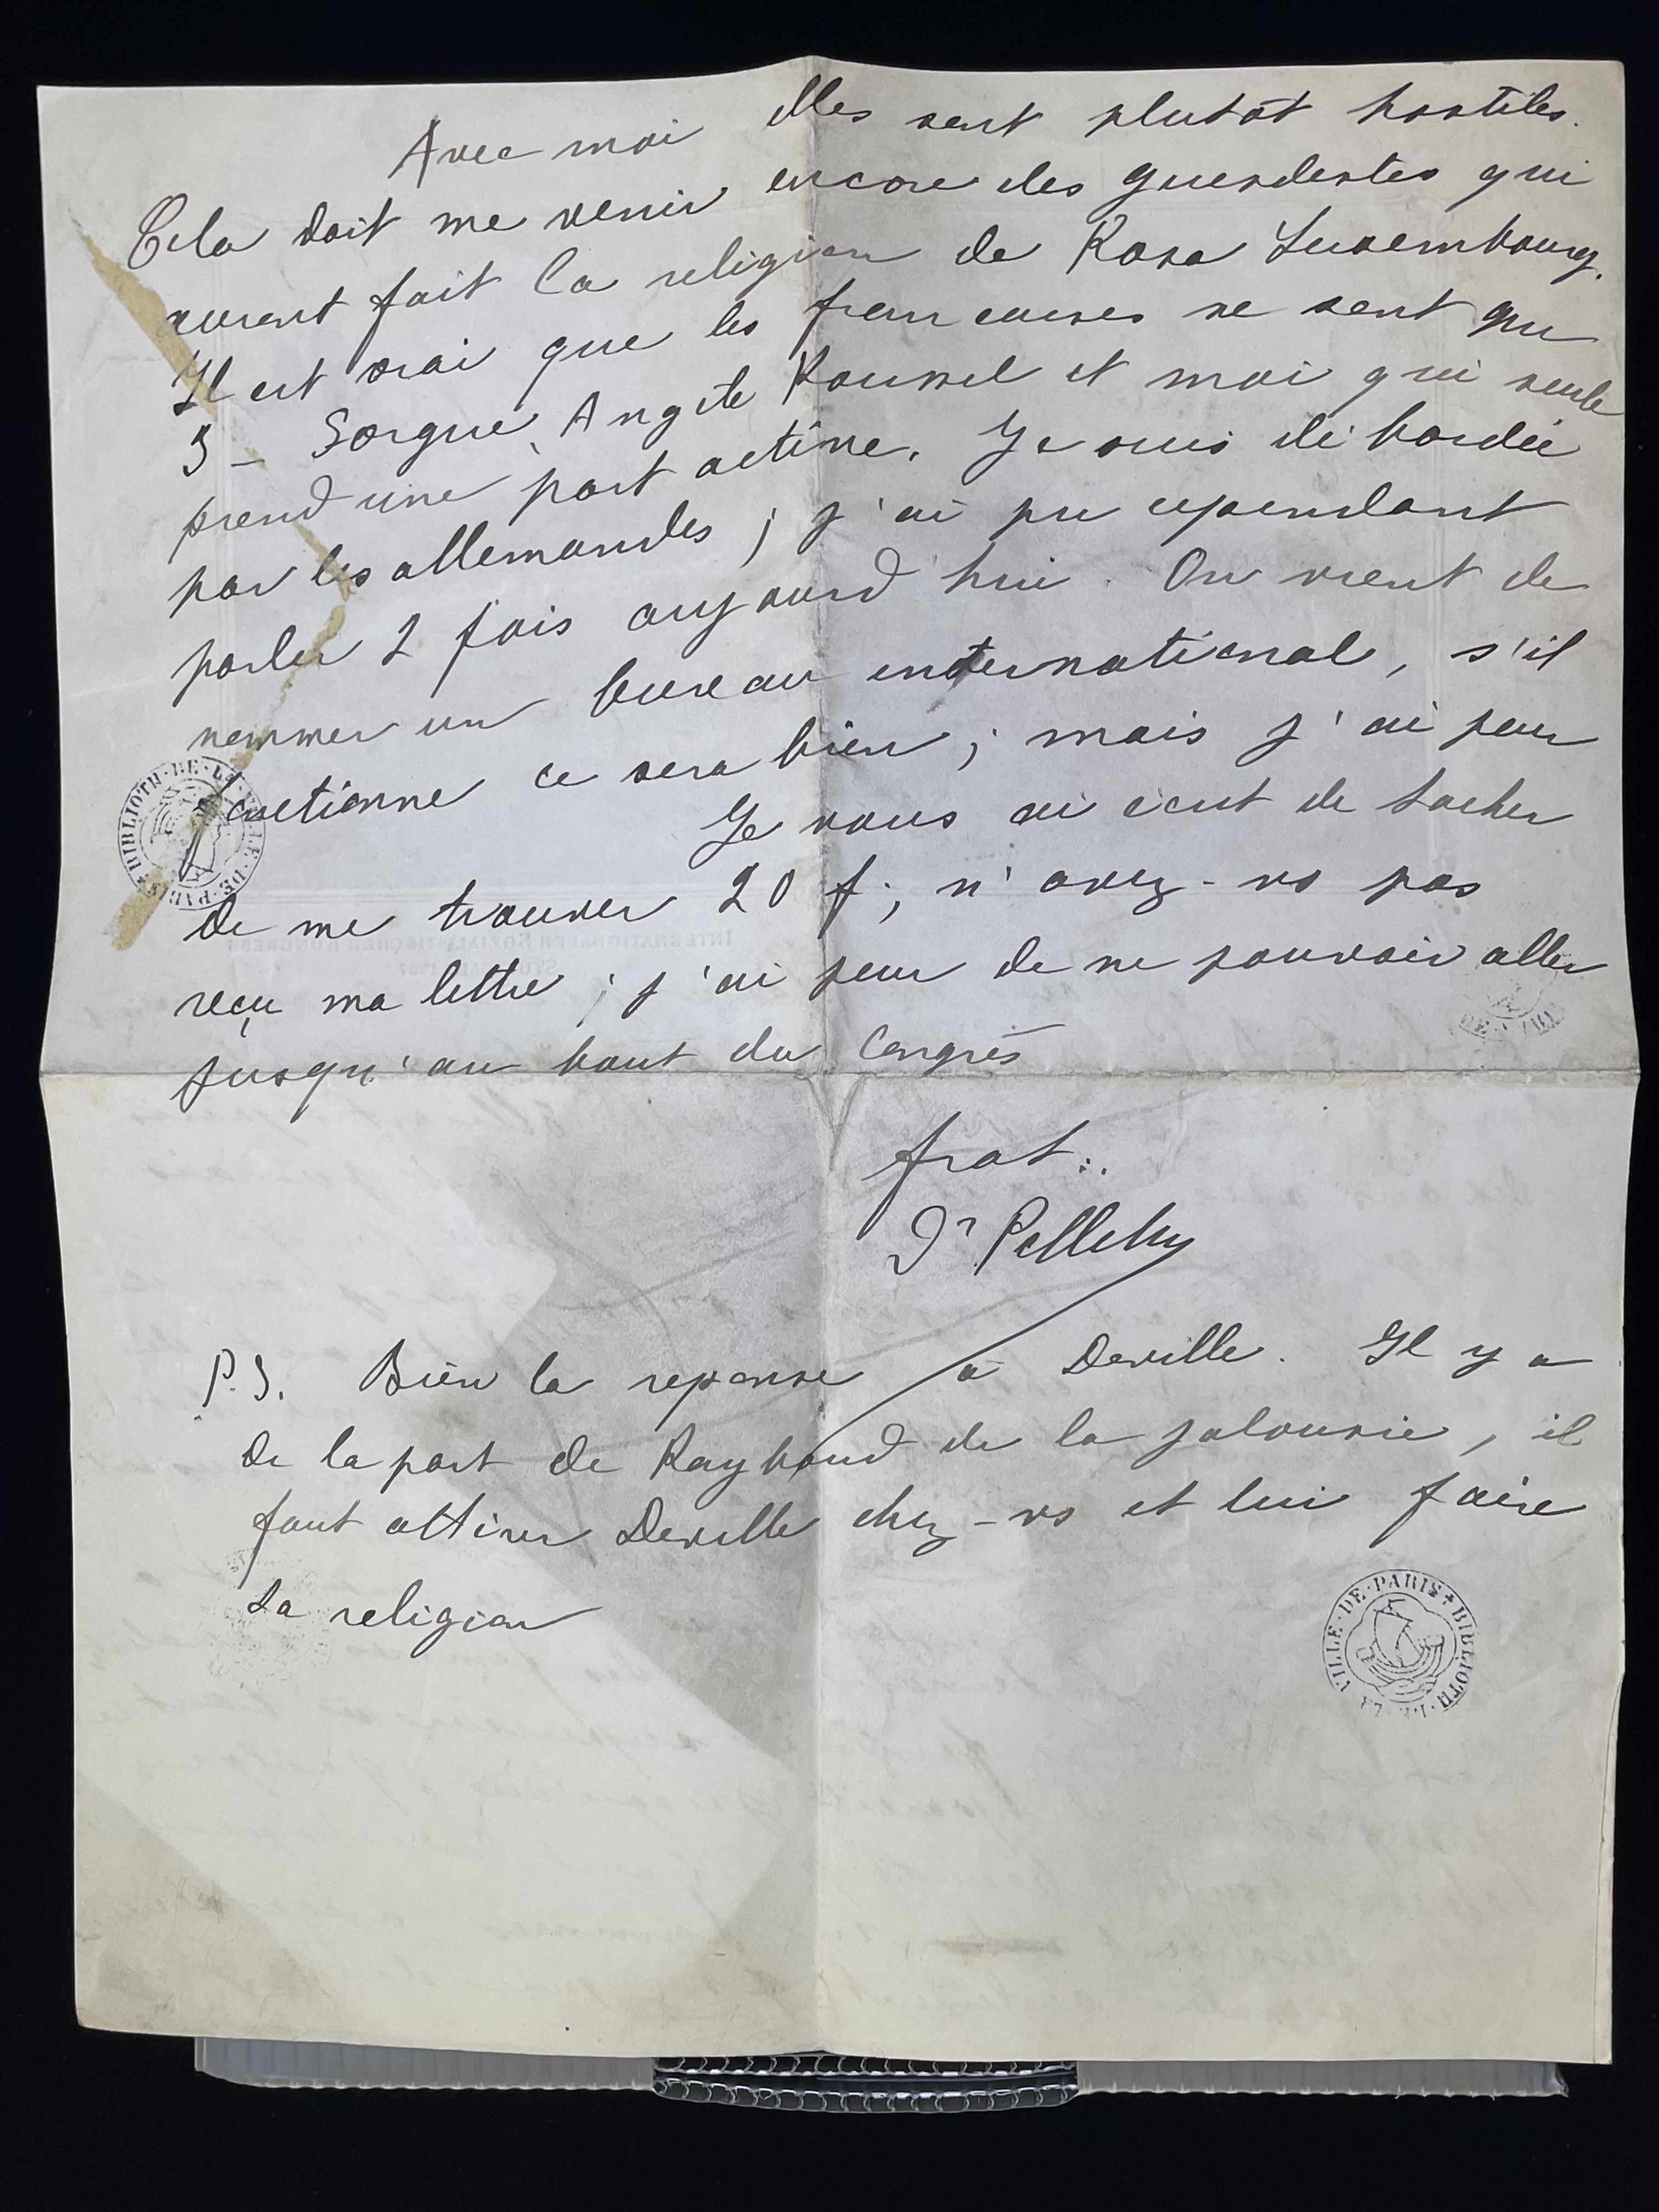 Avec moi elles sont plutôt hostiles.
Cela doit me venir encore des guesdistes qui
auront fait la religion de Rosa Luxembourg.
Il est vrai que les francaises ne sont que
3 - Sorgue, Angele Roussel et moi qui seule
prend une part active. Je suis débordée
par les allemandes ; j'ai pu cependant
parler 2 fois aujourd'hui. On vient de
nommer un bureau international, s'il
fonctionne ce sera bien ; mais j'ai peur
Je vous ai écrit de tacher
de me trouver 20 f ; n'avez-vs pas
reçu ma lettre ; j'ai peur de ne pouvoir aller
jusqu'au bout du Congrès
frat∴
Dr Pelletier
P.S. Bien la reponse à Deville. Il y a
de la part de Raybaud de la jalousie, il
faut attirer Deville chez-vs et lui faire
sa religion
BIBLIOTH·DE·LA·VILLE·DE·PARIS
INTERNATIONALER SOZIALISTISCHER KONGRESS
BIBLIOTH·DE·LA·VILLE·DE·PARIS